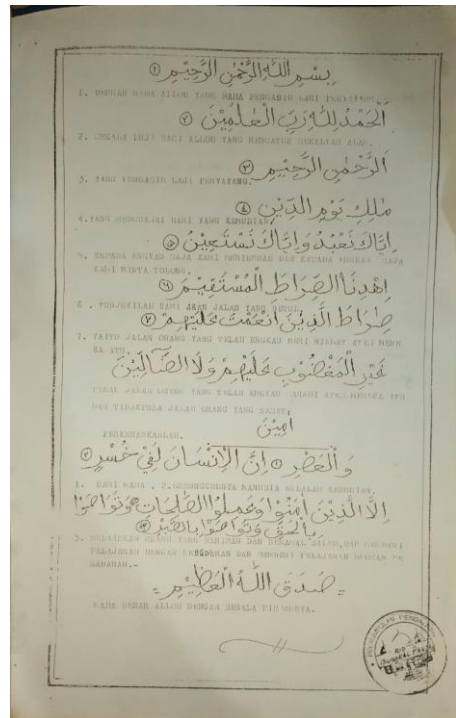 بِسْمِ اللّٰهِ الرَّحْمٰنِ الرَّحِيْمِ ١
1. DENGAN NAMA ALLOH YANG MAHA PENGASIH LAGI PENYAYANG.
اَلْحَمْدُ لِلّٰهِ رَبِّ الْعٰلَمِيْنَ ٢
2. SEGALA PUJI BAGI ALLOH YANG MENGATUR SEKALIAN ALAM.
اَلرَّحْمٰنِ الرَّحِيْمِ ٣
3. YANG PENGASIH LAGI PENYAYANG.
مٰلِكِ يَوْمِ الدِّيْنِ ٤
4. YANG MENGUASAI HARI YANG KEMUDIAN.
اِيَّاكَ نَعْبُدُ وَاِيَّاكَ نَسْتَعِيْنُ ٥
5. KEPADA ENGKAU SAJA KAMI MENYEMBAH DAN KEPADA ENGKAU SAJA
KAMI MINTA TOLONG.
اِهْدِنَا الصِّرَاطَ الْمُسْتَقِيْمَ ٦
6. TUNJUKILAH KAMI AKAN JALAN YANG BETUL.
صِرَاطَ الَّذِيْنَ اَنْعَمْتَ عَلَيْهِمْ ٧
7. YAITU JALAN ORANG YANG TELAH ENGKAU BERI NIKMAT ATAS MERE
KA ITU.
غَيْرِ الْمَغْضُوْبِ عَلَيْهِمْ وَلَا الضَّآلِّيْنَ
JALAN ORANG YANG TELAH ENGKAU ATAS MEREKA ITU
DAN JALAN ORANG YANG SESAT.
اٰمِيْنَ
PERKENANKANLAH.
وَالْعَصْرِ ١ اِنَّ الْاِنْسَانَ لَفِيْ خُسْرٍ ٢
1. DEMI MASA, 2. SESUNGGUHNYA MANUSIA DIDALAM KERUGIAN.
اِلَّا الَّذِيْنَ اٰمَنُوْا وَعَمِلُوا الصّٰلِحَاتِ وَتَوَاصَوْا
بِالْحَقِّ وَتَوَاصَوْا بِالصَّبْرِ ٣
3. ORANG YANG BERIMAN DAN BERAMAL SALEH, DAN MEMBERI
PELAJARAN DENGAN KEBENARAN DAN MEMBERI PELAJARAN DENGAN KE
SABARAN.-
= صَدَقَ اللّٰهُ الْعَظِيْمُ =
MAHA BENAR ALLOH DENGAN SEGALA FIRMANNYA.